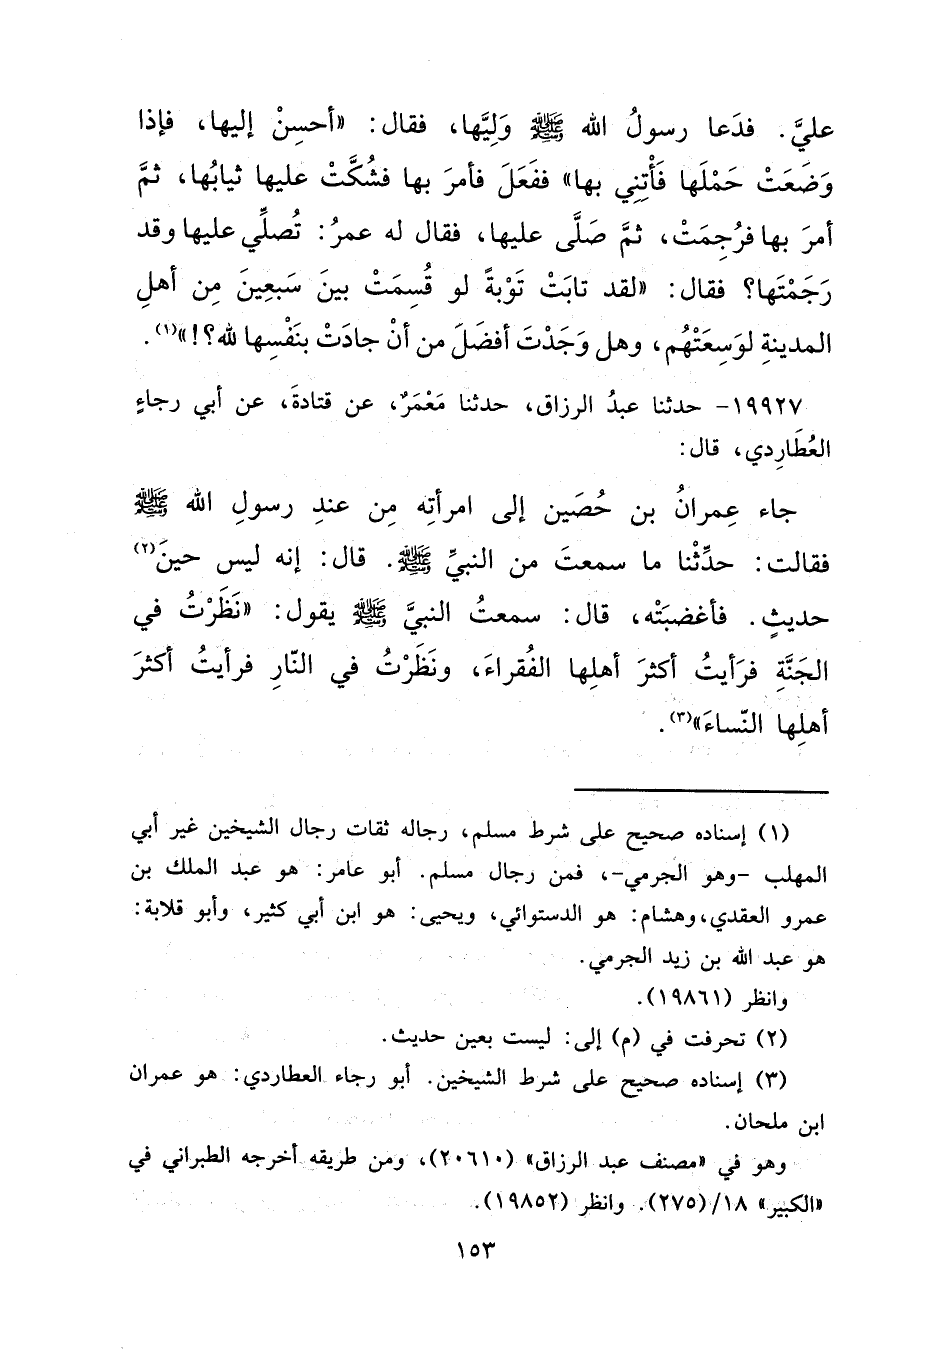 عليَّ. فدَعا رسولُ الله ﷺ وَلِيَّها، فقال: «أحسِنْ إليها، فإذا
وَضَعَتْ حَمْلَها فَأْتِنِي بها» ففَعَلَ فأمرَ بها فشُكَّتْ عليها ثيابُها، ثمَّ
أمرَ بها فرُجِمَتْ، ثمَّ صَلَّى عليها، فقال له عمرُ: تُصلِّي عليها وقد
رَجَمْتَها؟ فقال: «لقد تابَتْ تَوْبةً لو قُسِمَتْ بينَ سَبعِينَ مِن أهلِ
المدينةِ لوَسِعَتْهُم، وهل وَجَدْتَ أفضَلَ من أنْ جادَتْ بنَفْسِها لله؟!»(١).
١٩٩٢٧- حدثنا عبدُ الرزاق، حدثنا مَعْمَرٌ، عن قتادةَ، عن أبي رجاءٍ
العُطَارِدي، قال:
جاء عِمرانُ بن حُصَين إلى امرأتِه مِن عندِ رسولِ الله ﷺ
فقالت: حدِّثْنا ما سمعتَ من النبيِّ ﷺ. قال: إنه ليس حينَ(٢)
حديثٍ. فأغضبَتْه، قال: سمعتُ النبيَّ ﷺ يقول: «نَظَرْتُ في
الجَنَّةِ فرَأيتُ أكثرَ أهلِها الفُقراءَ، ونَظَرْتُ في النّارِ فرأيتُ أكثرَ
أهلِها النّساءَ»(٣).
(١) إسناده صحيح على شرط مسلم، رجاله ثقات رجال الشيخين غير أبي
المهلب -وهو الجرمي-، فمن رجال مسلم. أبو عامر: هو عبد الملك بن
عمرو العقدي، وهشام: هو الدستوائي، ويحيى: هو ابن أبي كثير، وأبو قلابة:
هو عبد الله بن زيد الجرمي.
وانظر (١٩٨٦١).
(٢) تحرفت في (م) إلى: ليست بعين حديث.
(٣) إسناده صحيح على شرط الشيخين. أبو رجاء العطاردي: هو عمران
ابن ملحان.
وهو في «مصنف عبد الرزاق» (٢٠٦١٠)، ومن طريقه أخرجه الطبراني في
«الكبير» ١٨/(٢٧٥). وانظر (١٩٨٥٢).
١٥٣